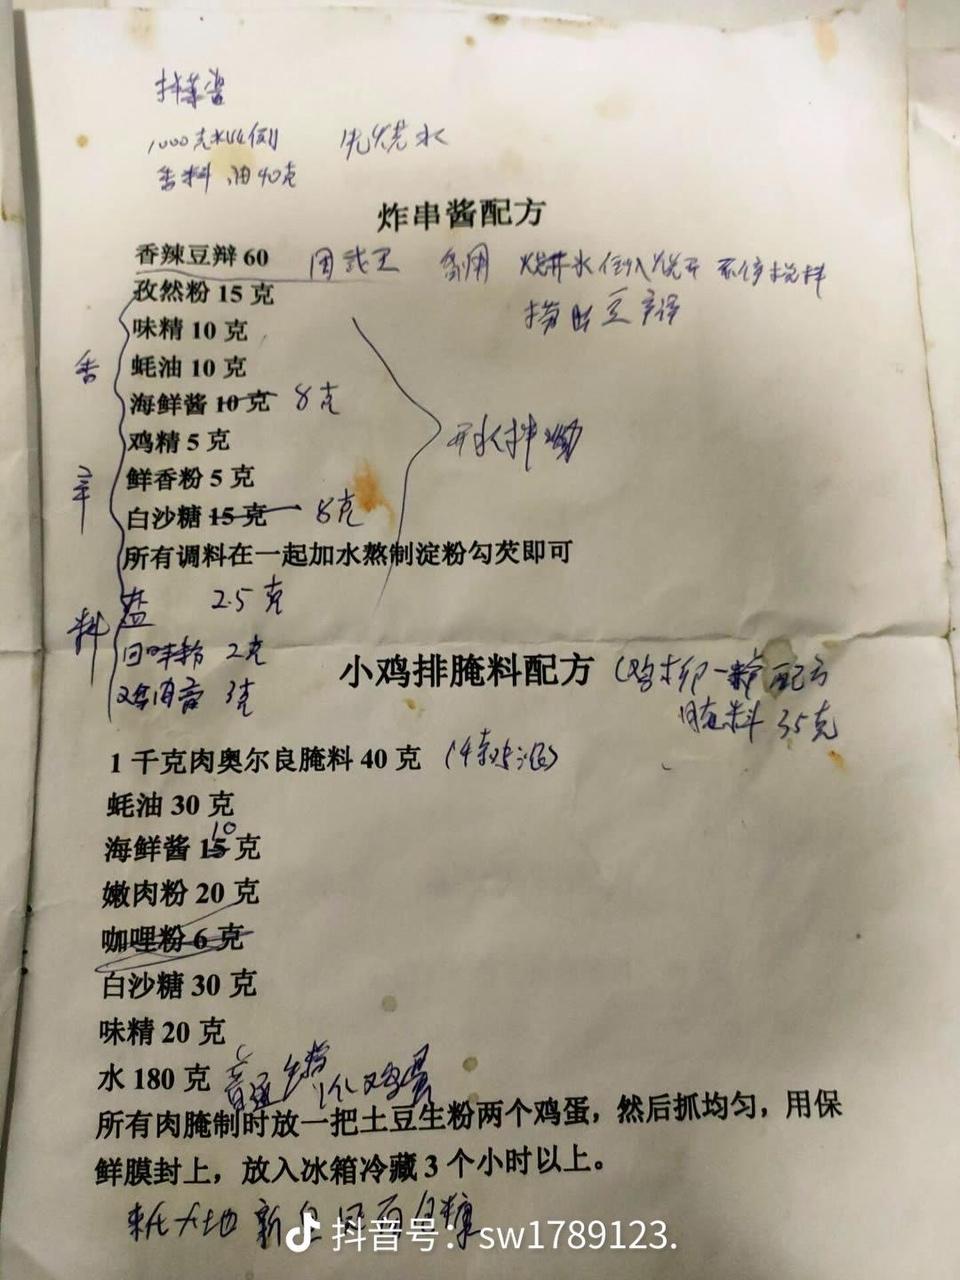 拌菜酱
1000克水比例 先烧水
香料油40克
炸串酱配方
香辣豆辩60 备用
孜然粉15克
味精10克
蚝油10克
海鲜酱10克 8克
鸡精5克
鲜香粉5克
白沙糖15克 8克
开水拌
香
辛
料
所有调料在一起加水熬制淀粉勾芡即可
盐 2.5克
回味粉 2克
3克
小鸡排腌料配方 配方
腌料35克
1千克肉奥尔良腌料40克
蚝油30克
海鲜酱15克 10
嫩肉粉20克
咖哩粉6克
白沙糖30克
味精20克
水180克 普通生粉 1个鸡蛋
所有肉腌制时放一把土豆生粉两个鸡蛋，然后抓均匀，用保
鲜膜封上，放入冰箱冷藏3个小时以上。
抖音号：sw1789123.